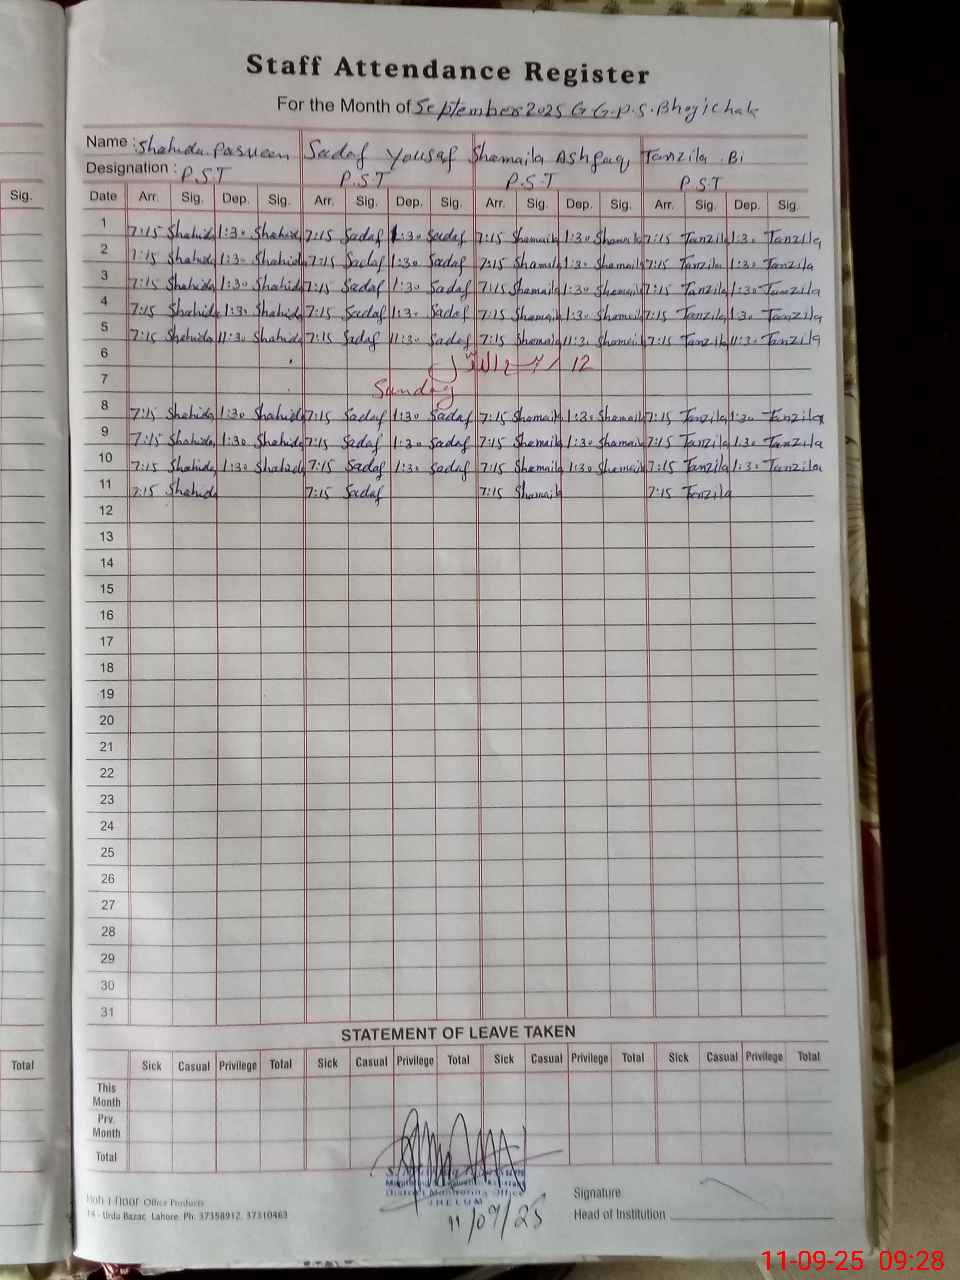 Staff Attendance Register
For the Month of September 2025 G.G.P.S. Bhojichak
Name : Shahida Parveen Sadaf Yousaf Shamaila Ashfaq Tanzila Bi
Designation : P.S.T P.S.T P.S.T P.S.T
Sig.
Date Arr. Sig. Dep. Sig. Arr. Sig. Dep. Sig. Arr. Sig. Dep. Sig. Arr. Sig. Dep. Sig.
1 7:15 Shahida 1:30 Shahida 7:15 Sadaf 1:30 Sadaf 7:15 Shamaila 1:30 Shamaila 7:15 Tanzila 1:30 Tanzila
2 7:15 Shahida 1:30 Shahida 7:15 Sadaf 1:30 Sadaf 7:15 Shamaila 1:30 Shamaila 7:15 Tanzila 1:30 Tanzila
3 7:15 Shahida 1:30 Shahida 7:15 Sadaf 1:30 Sadaf 7:15 Shamaila 1:30 Shamaila 7:15 Tanzila 1:30 Tanzila
4 7:15 Shahida 1:30 Shahida 7:15 Sadaf 1:30 Sadaf 7:15 Shamaila 1:30 Shamaila 7:15 Tanzila 1:30 Tanzila
5 7:15 Shahida 11:30 Shahida 7:15 Sadaf 11:30 Sadaf 7:15 Shamaila 11:30 Shamaila 7:15 Tanzila 11:30 Tanzila
6 12 ربیع الاوّل
7 Sunday
8 7:15 Shahida 1:30 Shahida 7:15 Sadaf 1:30 Sadaf 7:15 Shamaila 1:30 Shamaila 7:15 Tanzila 1:30 Tanzila
9 7:15 Shahida 1:30 Shahida 7:15 Sadaf 1:30 Sadaf 7:15 Shamaila 1:30 Shamaila 7:15 Tanzila 1:30 Tanzila
10 7:15 Shahida 1:30 Shahida 7:15 Sadaf 1:30 Sadaf 7:15 Shamaila 1:30 Shamaila 7:15 Tanzila 1:30 Tanzila
11 7:15 Shahida 7:15 Sadaf 7:15 Shamaila 7:15 Tanzila
12
13
14
15
16
17
18
19
20
21
22
23
24
25
26
27
28
29
30
31
STATEMENT OF LEAVE TAKEN
Total
Sick Casual Privilege Total Sick Casual Privilege Total Sick Casual Privilege Total Sick Casual Privilege Total
This Month
Prv. Month
Total
District Monitoring Office
JHELUM
11/09/25
Office Products
14 - Urdu Bazar, Lahore. Ph: 37358912, 37310463
Signature
Head of Institution
11-09-25 09:28